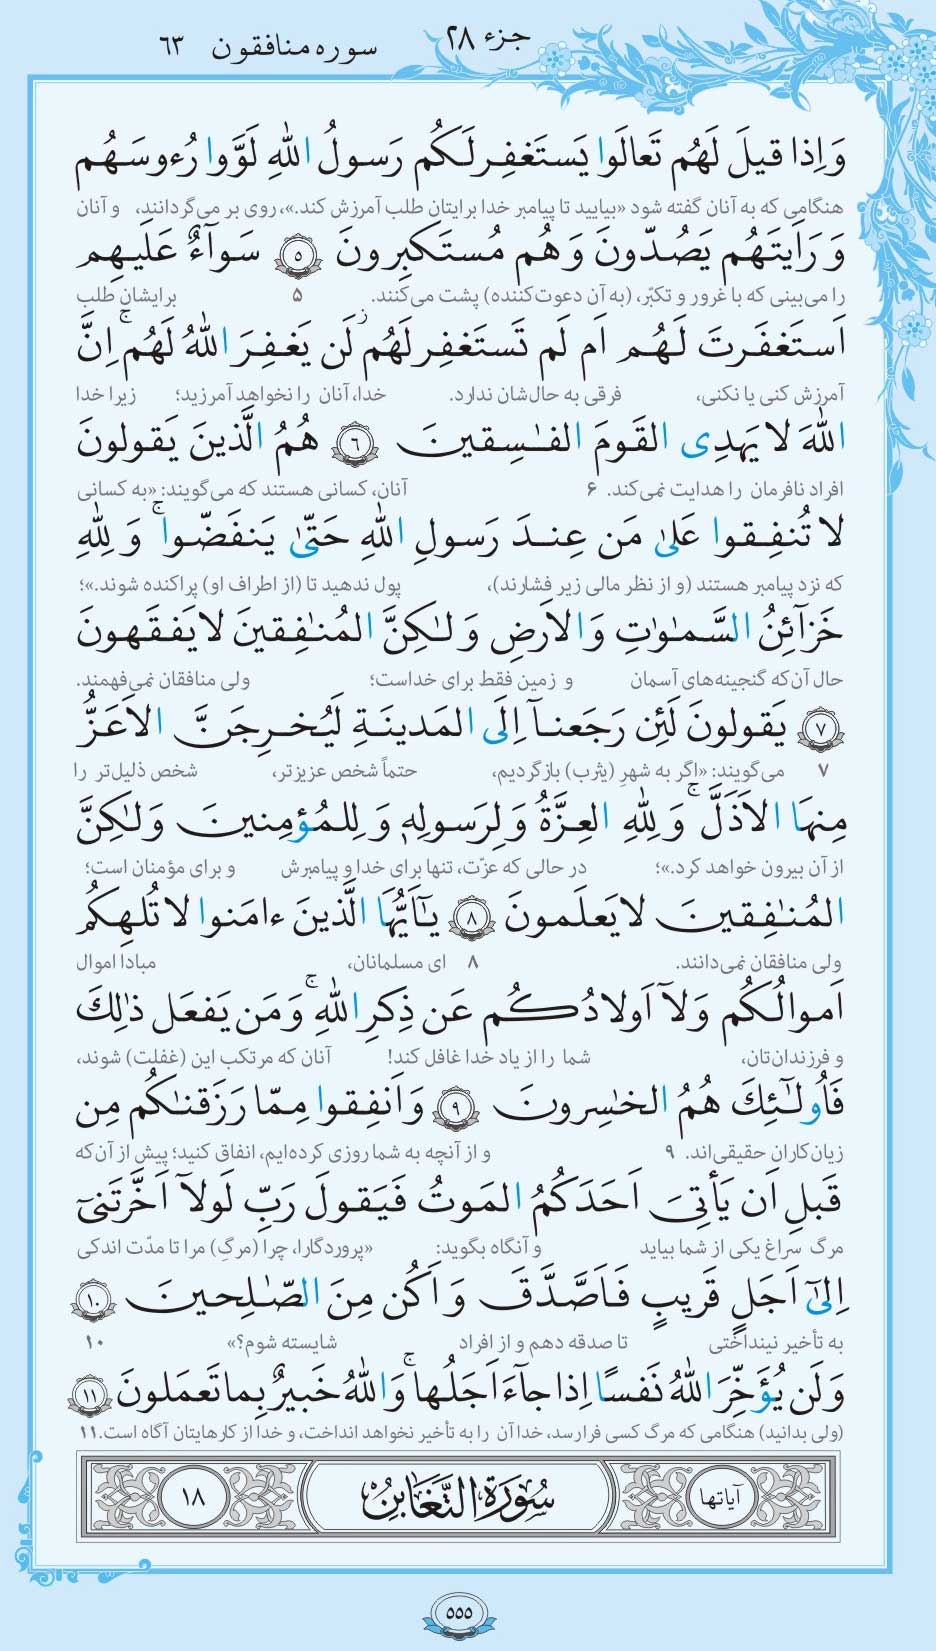 جزء ۲۸ سوره منافقون ۶۳
وَاِذا قیلَ لَهُم تَعالَوا یَستَغفِر لَکُم رَسولُ اللّٰهِ لَوَّوا رُءوسَهُم
هنگامی که به آنان گفته شود «بیایید تا پیامبر خدا برایتان طلب آمرزش کند.»، روی بر می‌گردانند، و آنان
وَ رَاَیتَهُم یَصُدّونَ وَ هُم مُستَکبِرونَ ۵ سَوآءٌ عَلَیهِم
را می‌بینی که با غرور و تکبّر، (به آن دعوت‌کننده) پشت می‌کنند. ۵ برایشان طلب
اَستَغفَرتَ لَهُم اَم لَم تَستَغفِر لَهُم ز لَن یَغفِرَ اللّٰهُ لَهُم ۚ اِنَّ
آمرزش کنی یا نکنی، فرقی به حال‌شان ندارد. خدا، آنان را نخواهد آمرزید؛ زیرا خدا
اللّٰهَ لا یَهدِی القَومَ الفٰسِقینَ ۶ هُمُ الَّذینَ یَقولونَ
افراد نافرمان را هدایت نمی‌کند. ۶ آنان، کسانی هستند که می‌گویند: «به کسانی
لا تُنفِقوا عَلیٰ مَن عِندَ رَسولِ اللّٰهِ حَتّیٰ یَنفَضّوا ۚ وَ لِلّٰهِ
که نزد پیامبر هستند (و از نظر مالی زیر فشارند)، پول ندهید تا (از اطراف او) پراکنده شوند.»؛
خَزآئِنُ السَّمٰوٰتِ وَ الاَرضِ وَ لٰکِنَّ المُنٰفِقینَ لا یَفقَهونَ
حال آن‌که گنجینه‌های آسمان و زمین فقط برای خداست؛ ولی منافقان نمی‌فهمند.
۷ یَقولونَ لَئِن رَجَعنآ اِلَی المَدینَةِ لَیُخرِجَنَّ الاَعَزُّ
۷ می‌گویند: «اگر به شهرِ (یثرب) بازگردیم، حتماً شخص عزیزتر، شخص ذلیل‌تر را
مِنهَا الاَذَلَّ ۚ وَ لِلّٰهِ العِزَّةُ وَ لِرَسولِهٖ وَ لِلمُؤمِنینَ وَ لٰکِنَّ
از آن بیرون خواهد کرد.»؛ در حالی که عزّت، تنها برای خدا و پیامبرش و برای مؤمنان است؛
المُنٰفِقینَ لا یَعلَمونَ ۸ یٰٓاَیُّهَا الَّذینَ ءامَنوا لا تُلهِکُم
ولی منافقان نمی‌دانند. ۸ ای مسلمانان، مبادا اموال
اَموالُکُم وَ لآ اَولادُکُم عَن ذِکرِ اللّٰهِ ۚ وَ مَن یَفعَل ذٰلِكَ
و فرزندان‌تان، شما را از یاد خدا غافل کند! آنان که مرتکب این (غفلت) شوند،
فَاُولٰٓئِكَ هُمُ الخٰسِرونَ ۹ وَ اَنفِقوا مِمّا رَزَقنٰکُم مِن
زیان‌کاران حقیقی‌اند. ۹ و از آنچه به شما روزی کرده‌ایم، انفاق کنید؛ پیش از آن‌که
قَبلِ اَن یَأتِیَ اَحَدَکُمُ المَوتُ فَیَقولَ رَبِّ لَولآ اَخَّرتَنیٓ
مرگ سراغ یکی از شما بیاید و آنگاه بگوید: «پروردگارا، چرا (مرگِ) مرا تا مدّت اندکی
اِلیٰٓ اَجَلٍ قَریبٍ فَاَصَّدَّقَ وَ اَکُن مِنَ الصّٰلِحینَ ۱۰
به تأخیر نینداختی تا صدقه دهم و از افراد شایسته شوم؟» ۱۰
وَ لَن یُؤَخِّرَ اللّٰهُ نَفسًا اِذا جآءَ اَجَلُها ۚ وَ اللّٰهُ خَبیرٌ بِما تَعمَلونَ ۱۱
(ولی بدانید) هنگامی که مرگ کسی فرا رسد، خدا آن را به تأخیر نخواهد انداخت، و خدا از کارهایتان آگاه است. ۱۱
آیاتها سُورَةُ التَّغَابُنِ ۱۸
۵۵۵